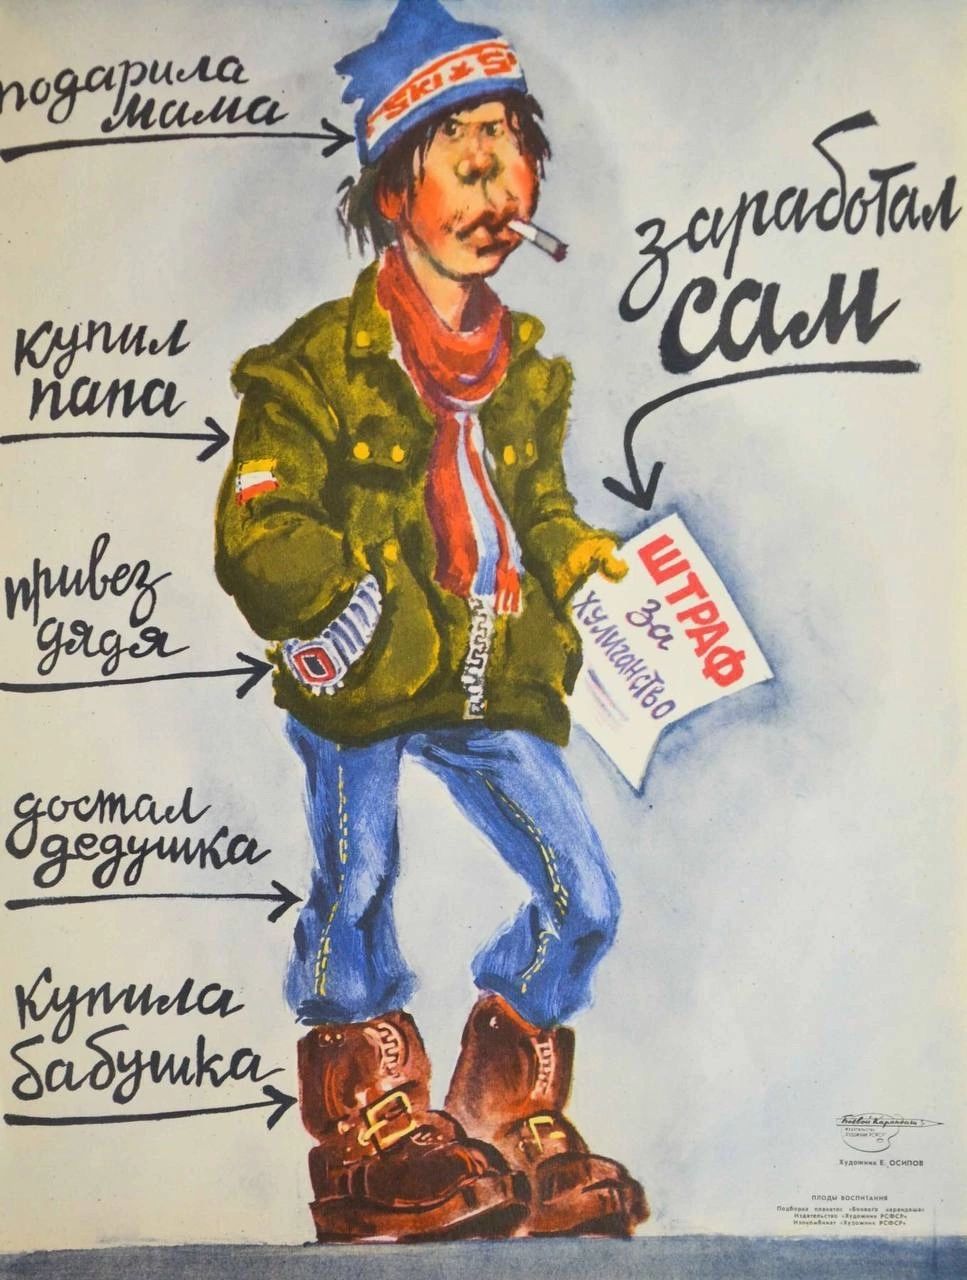 подарила
мама
SKI SKI
купил
папа
привез
дядя
достал
дедушка
купила
бабушка
заработал
сам
ШТРАФ
за
хулиганство
Боевой Карандаш
ИЗДАТЕЛЬСТВО
ХУДОЖНИК РСФСР
Художник Е. ОСИПОВ
ПЛОДЫ ВОСПИТАНИЯ
Подборка плакатов «Боевого карандаша»
Издательство «Художник РСФСР»
Изокомбинат «Художник РСФСР»